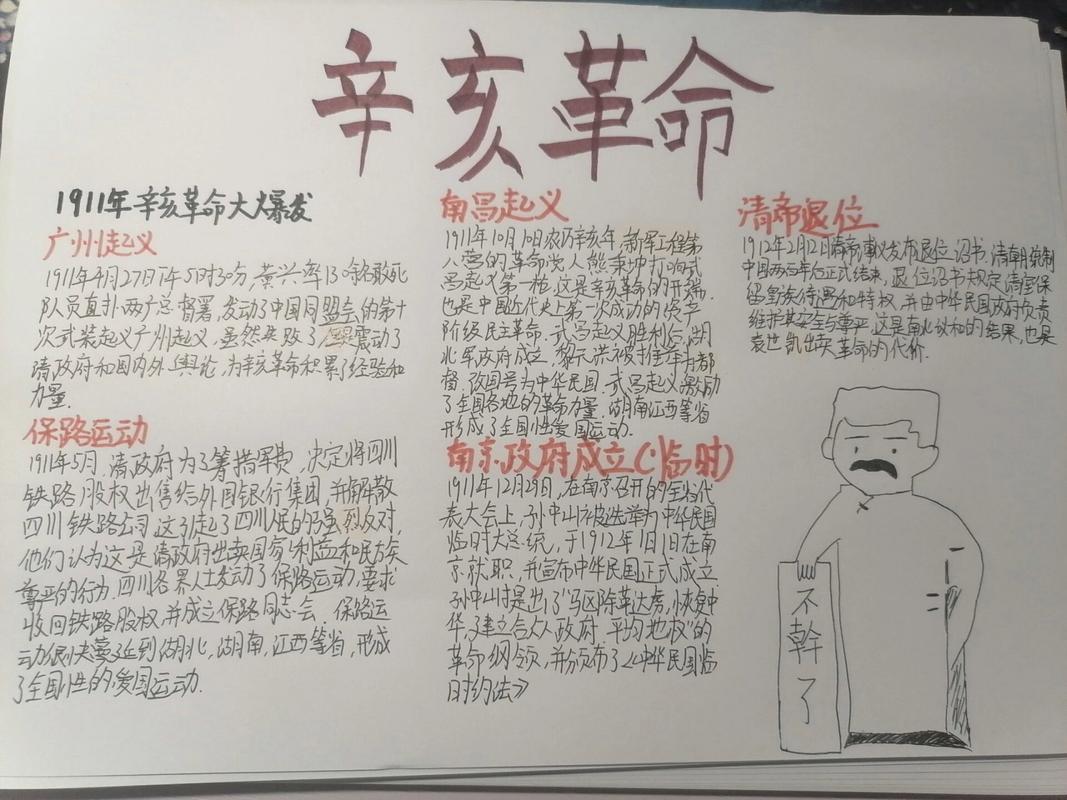 辛亥革命
1911年辛亥革命大爆发
广州起义
1911年4月27日下午5时30分,黄兴率130名敢死
队员直扑两广总督署,发动了中国同盟会的第十
次武装起义广州起义,虽然失败了,但是震动了
清政府和国内外舆论,为辛亥革命积累了经验和
力量.
保路运动
1911年5月,清政府为了筹措军费,决定将四川
铁路股权出售给外国银行集团,并解散
四川铁路公司这引起了四川民的强烈反对,
他们认为这是清政府出卖国家利益和民族
尊严的行为.四川各界人士发动了保路运动,要求
收回铁路股权,并成立保路同志会.保路运
动很快蔓延到湖北,湖南,江西等省,形成
了全国性的爱国运动.
南昌起义
1911年10月10日农历辛亥年,新军工程第
八营的革命党人熊秉坤打响武
昌起义第一枪,这是辛亥革命的开端,
也是中国近代史上第一次成功的资产
阶级民主革命.武昌起义胜利后,湖
北军政府成立,黎元洪被推举为都
督.改国号为中华民国.武昌起义激励
了全国各地的革命力量,湖南江西等省
形成了全国性爱国运动.
南京政府成立(临时)
1911年12月29日,在南京召开的全省代
表大会上,孙中山被选举为中华民国
临时大总统,于1912年1月1日在南
京就职,并宣布中华民国正式成立.
孙中山时提出了"马区除革达虏,恢复中
华,建立合众政府,平均地权"的
革命纲领,并颁布了《中华民国临
时约法》
清帝退位
1912年2月12日清帝溥仪发布退位诏书,清朝统制
中国两百年后正式结束,退位诏书规定,清室保
留贵族待遇和特权,并由中华民国政府负责
维护其安全与尊严,这是南北议和的结果,也是
袁世凯出卖革命的代价.
不幹了